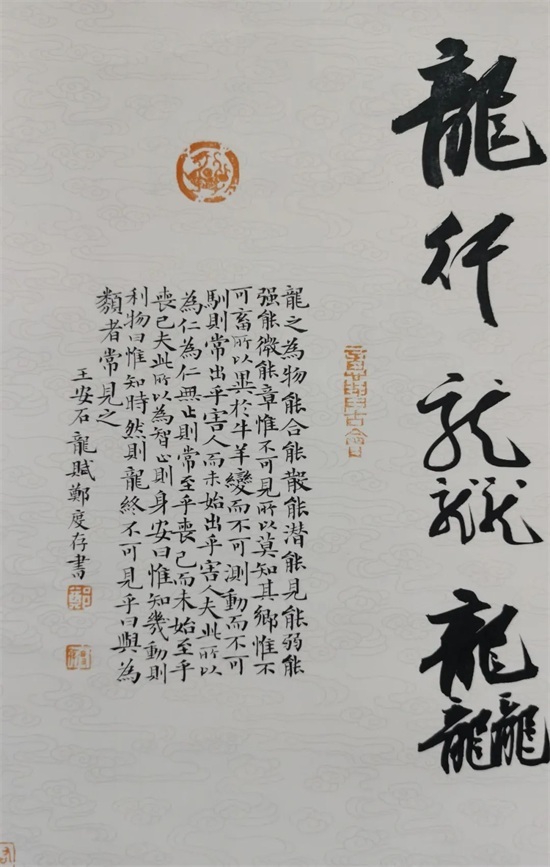 龍行龘龘
龍之為物能合能散能潜能見能弱能
强能微能章惟不可見所以莫知其鄉惟不
可畜所以異於牛羊變而不可測動而不可
馴則常出乎害人而未始出乎害人夫此所以
為仁為仁無止則常至乎喪己而未始至乎
喪己夫此所以為智止則身安曰惟知幾動則
利物曰惟知時然則龍終不可見乎曰與為
類者常見之
王安石龍賦鄭度存書